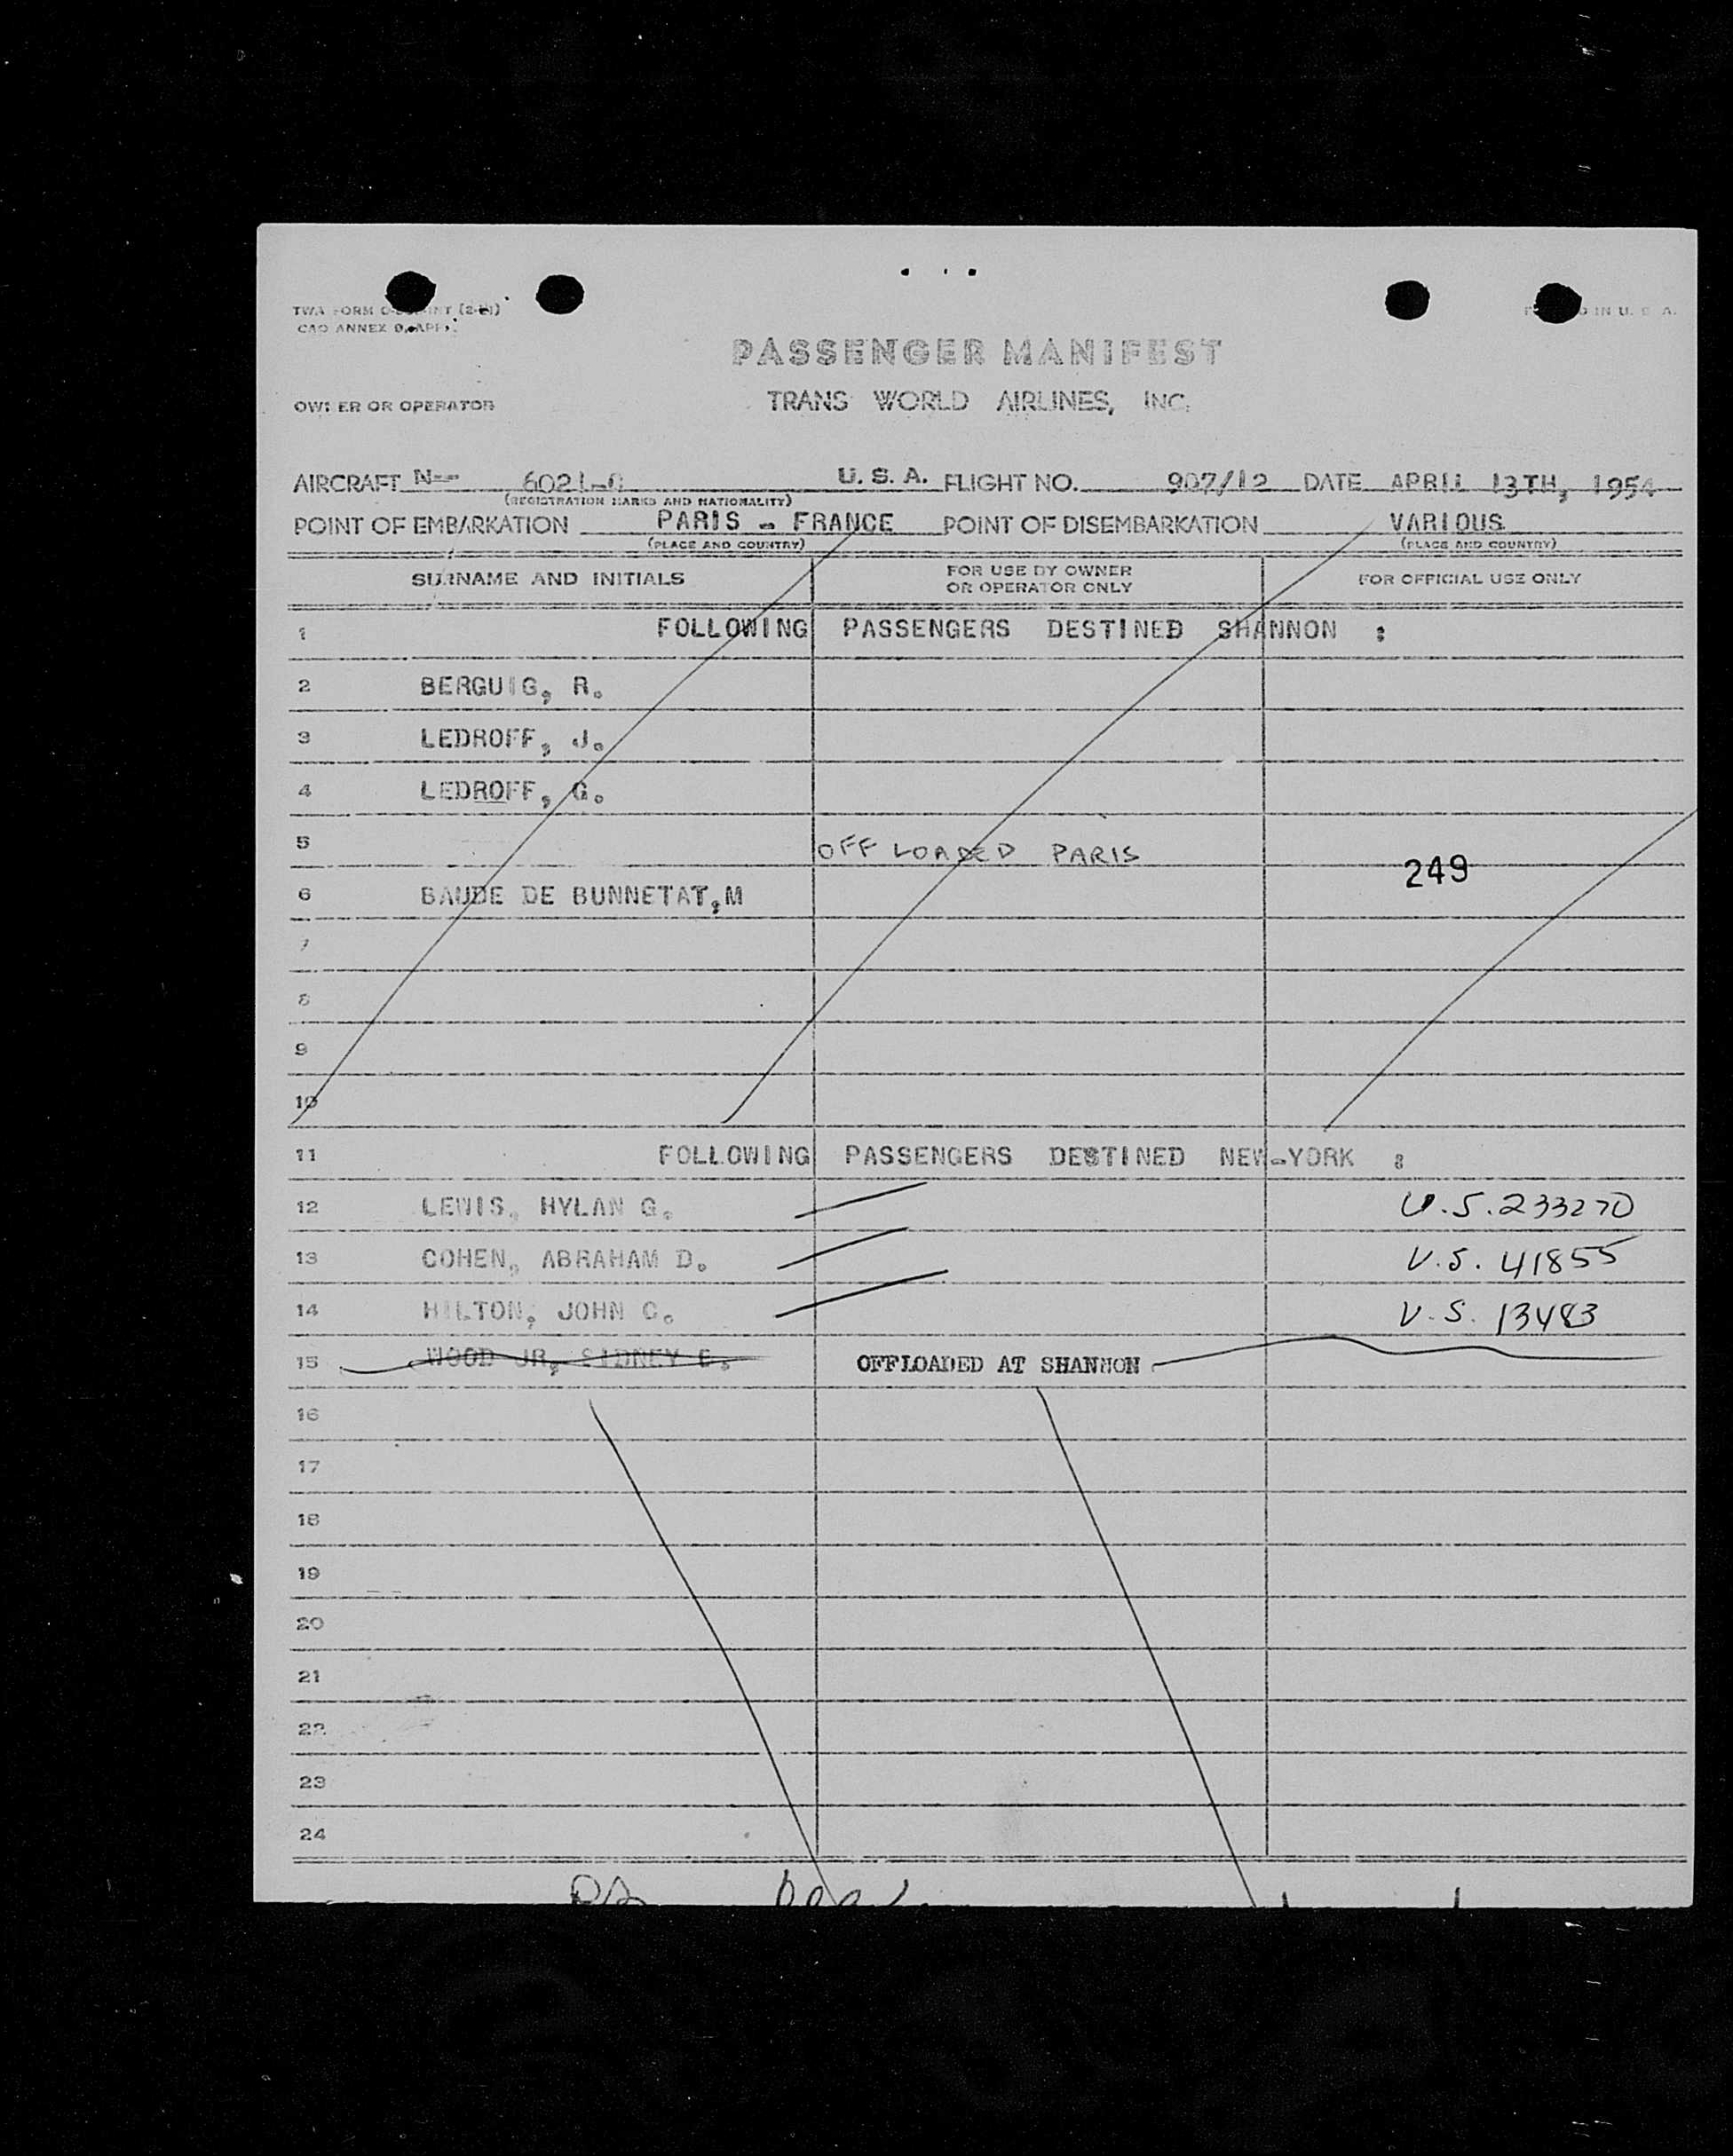 TWA FORM
CAO ANNEX 9, APP.
IN U. S. A.
PASSENGER MANIFEST
OWNER OR OPERATOR TRANS WORLD AIRLINES, INC.
AIRCRAFT N-- 6021-C U. S. A. FLIGHT NO. 907/12 DATE APRIL 13TH, 1954
(REGISTRATION MARKS AND NATIONALITY)
POINT OF EMBARKATION PARIS - FRANCE POINT OF DISEMBARKATION VARIOUS
(PLACE AND COUNTRY) (PLACE AND COUNTRY)
SURNAME AND INITIALS FOR USE BY OWNER OR OPERATOR ONLY FOR OFFICIAL USE ONLY
1 FOLLOWING PASSENGERS DESTINED SHANNON :
2 BERGUIG, R.
3 LEDROFF, J.
4 LEDROFF, G.
5 OFF LOADED PARIS
249
6 BAUDE DE BUNNETAT,M
7
8
9
10
11 FOLLOWING PASSENGERS DESTINED NEW-YORK :
12 LEWIS, HYLAN G. U.S. 233270
13 COHEN, ABRAHAM D. U.S. 41855
14 HILTON, JOHN C. U.S. 13483
15 WOOD JR, SIDNEY B. OFFLOADED AT SHANNON
16
17
18
19
20
21
22
23
24